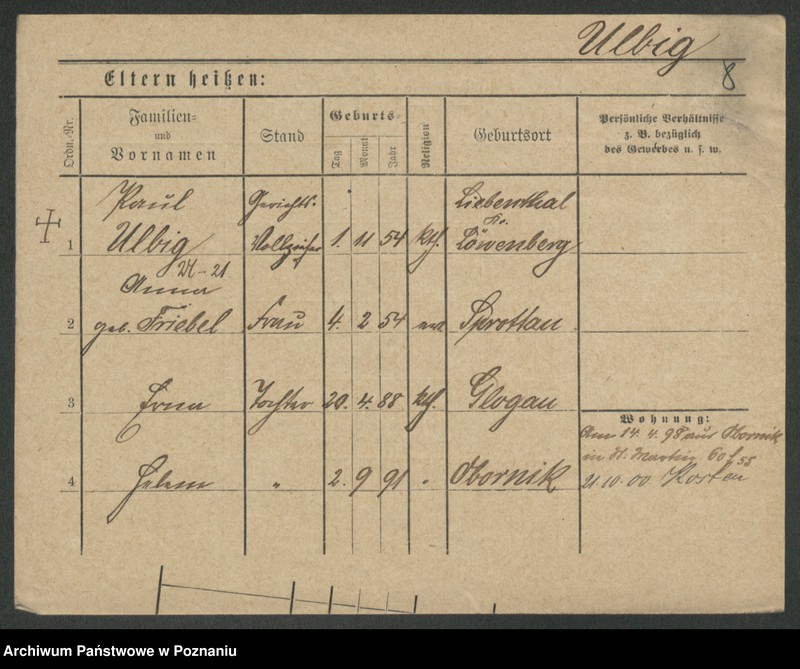 Ulbig
8
Eltern heißen:
Ordn.-Nr.
Familien-
und
Vornamen
Stand
Geburts-
Tag
Monat
Jahr
Religion
Geburtsort
Persönliche Verhältnisse
z. B. bezüglich
des Gewerbes u. s. w.
Paul Gerichts- Liebenthal
Kr.
1 Ulbig Vollzieher 1. 11 54 kth. Löwenberg
21
Anna
2 geb. Friebel Frau 4. 2 54 ev Sprottau
3 Erna Tochter 20. 4. 88 kth. Glogau
Wohnung:
Am 14. 4. 98 aus Obornik
in St. Martin 60
4 Helene " 2. 9 91 " Obornik
21.10.00 Kosten
Archiwum Państwowe w Poznaniu